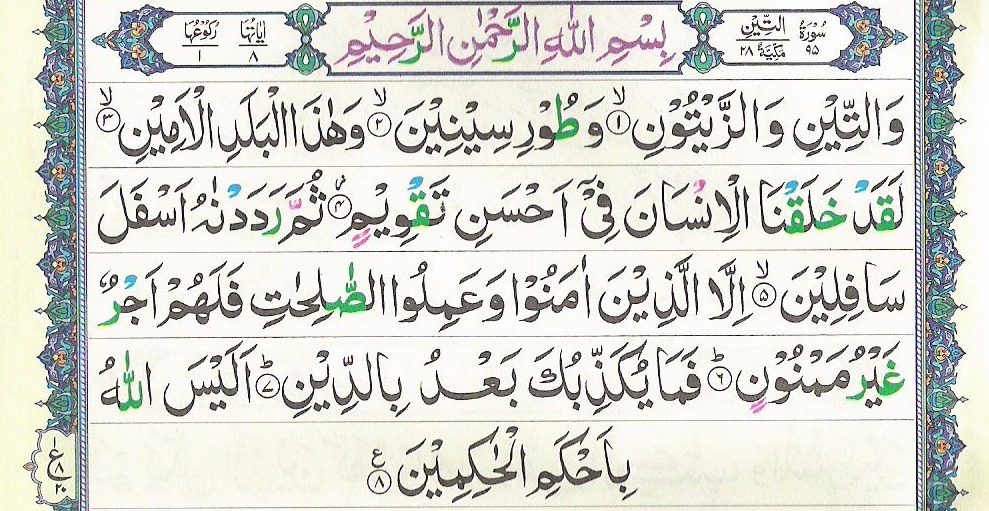 سُوْرَةُ ٩٥ التِّيْنِ مَكِّيَّةٌ ٢٨
بِسْمِ اللّٰهِ الرَّحْمٰنِ الرَّحِيْمِ
اٰيَاتُهَا ٨ رُكُوْعُهَا ١
وَالتِّيْنِ وَالزَّيْتُوْنِ ۙ﴿١﴾ وَطُوْرِ سِيْنِيْنَ ۙ﴿٢﴾ وَهٰذَا الْبَلَدِ الْاَمِيْنِ ۙ﴿٣﴾
لَقَدْ خَلَقْنَا الْاِنْسَانَ فِيْٓ اَحْسَنِ تَقْوِيْمٍ ﴿٤﴾ ثُمَّ رَدَدْنٰهُ اَسْفَلَ
سَافِلِيْنَ ۙ﴿٥﴾ اِلَّا الَّذِيْنَ اٰمَنُوْا وَعَمِلُوا الصّٰلِحٰتِ فَلَهُمْ اَجْرٌ
غَيْرُ مَمْنُوْنٍ ؕ﴿٦﴾ فَمَا يُكَذِّبُكَ بَعْدُ بِالدِّيْنِ ؕ﴿٧﴾ اَلَيْسَ اللّٰهُ
بِاَحْكَمِ الْحٰكِمِيْنَ ﴿٨﴾ ع
١ ع ٨ ٢٠